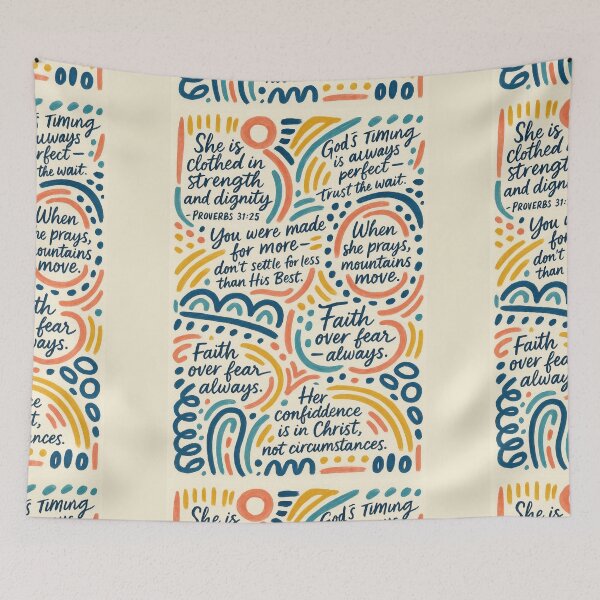 's Timing
always
perfect—
the wait.
When
she prays,
mountains
move.
over fear
She is
clothed in
strength
and dignity
- PROVERBS 31:25
God's Timing
is always
perfect—
Trust the wait.
You were made
for more—
don't settle for less
than His Best.
When
she prays,
mountains
move.
Faith
over fear
always.
Faith
over fear
—always.
Her
confiddence
is in Christ,
not circumstances.
She is
God's Timing
She is
clothed in
strength
and dignity
- PROVERBS 31:
You were
for
don't
than
Faith
over fear
always.
She is